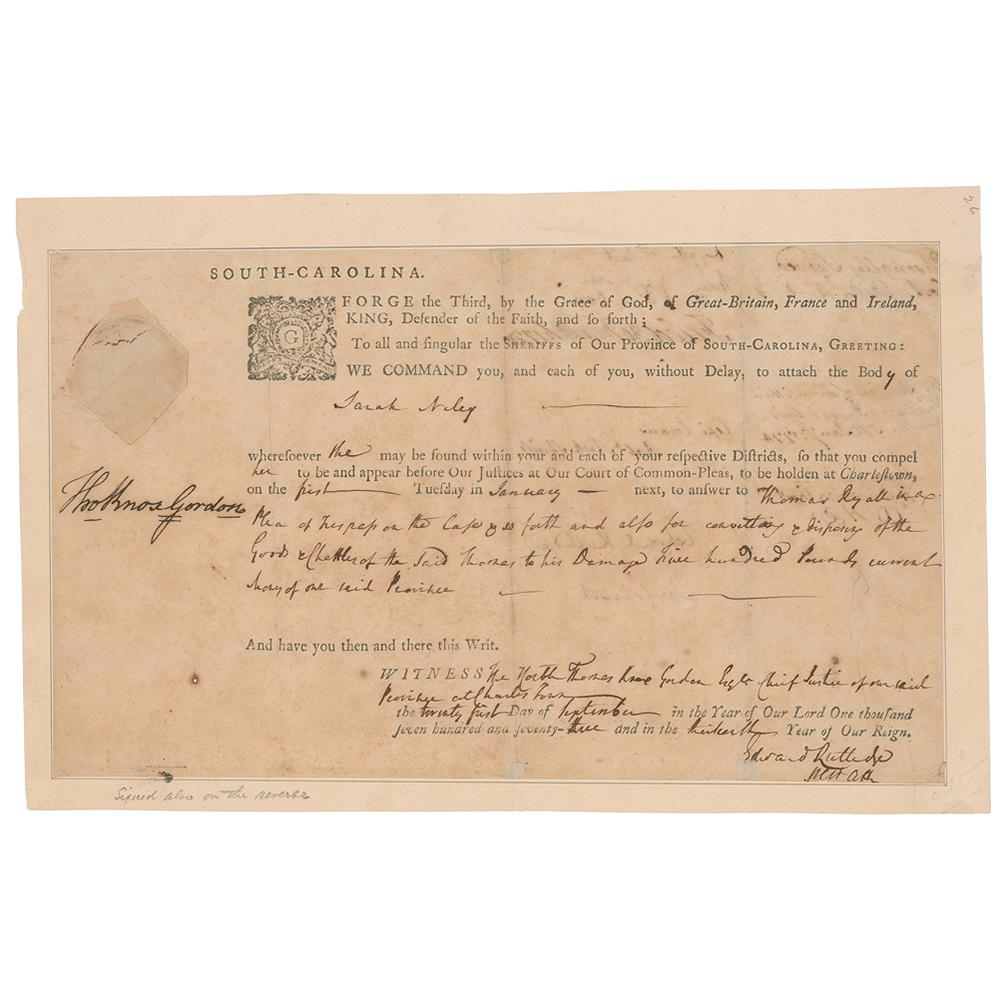 26
SOUTH-CAROLINA.
GEORGE the Third, by the Grace of God, of Great-Britain, France and Ireland,
KING, Defender of the Faith, and so forth;
To all and singular the SHERIFFS of Our Province of SOUTH-CAROLINA, GREETING:
WE COMMAND you, and each of you, without Delay, to attach the Body of
Sarah Neley
wheresoever she may be found within your and each of your respective Districts, so that you compel
her to be and appear before Our Justices at Our Court of Common-Pleas, to be holden at Charlestown,
on the first Tuesday in January next, to answer to Thomas Ryall in a
Tho Knox Gordon
Plea of Trespass on the Case & so forth and also for converting & disposing of the
Goods & Chattles of the Said Thomas to his Damage Five hundred Pounds current
Money of our said Province
And have you then and there this Writ.
WITNESS The Honble Thomas Knox Gordon Esqr Chief Justice of our said
Province at Charles Town
the twenty first Day of September in the Year of Our Lord One thousand
seven hundred and seventy-three and in the thirteenth Year of Our Reign.
Edward Rutledge
Plt Att
Signed also on the reverse